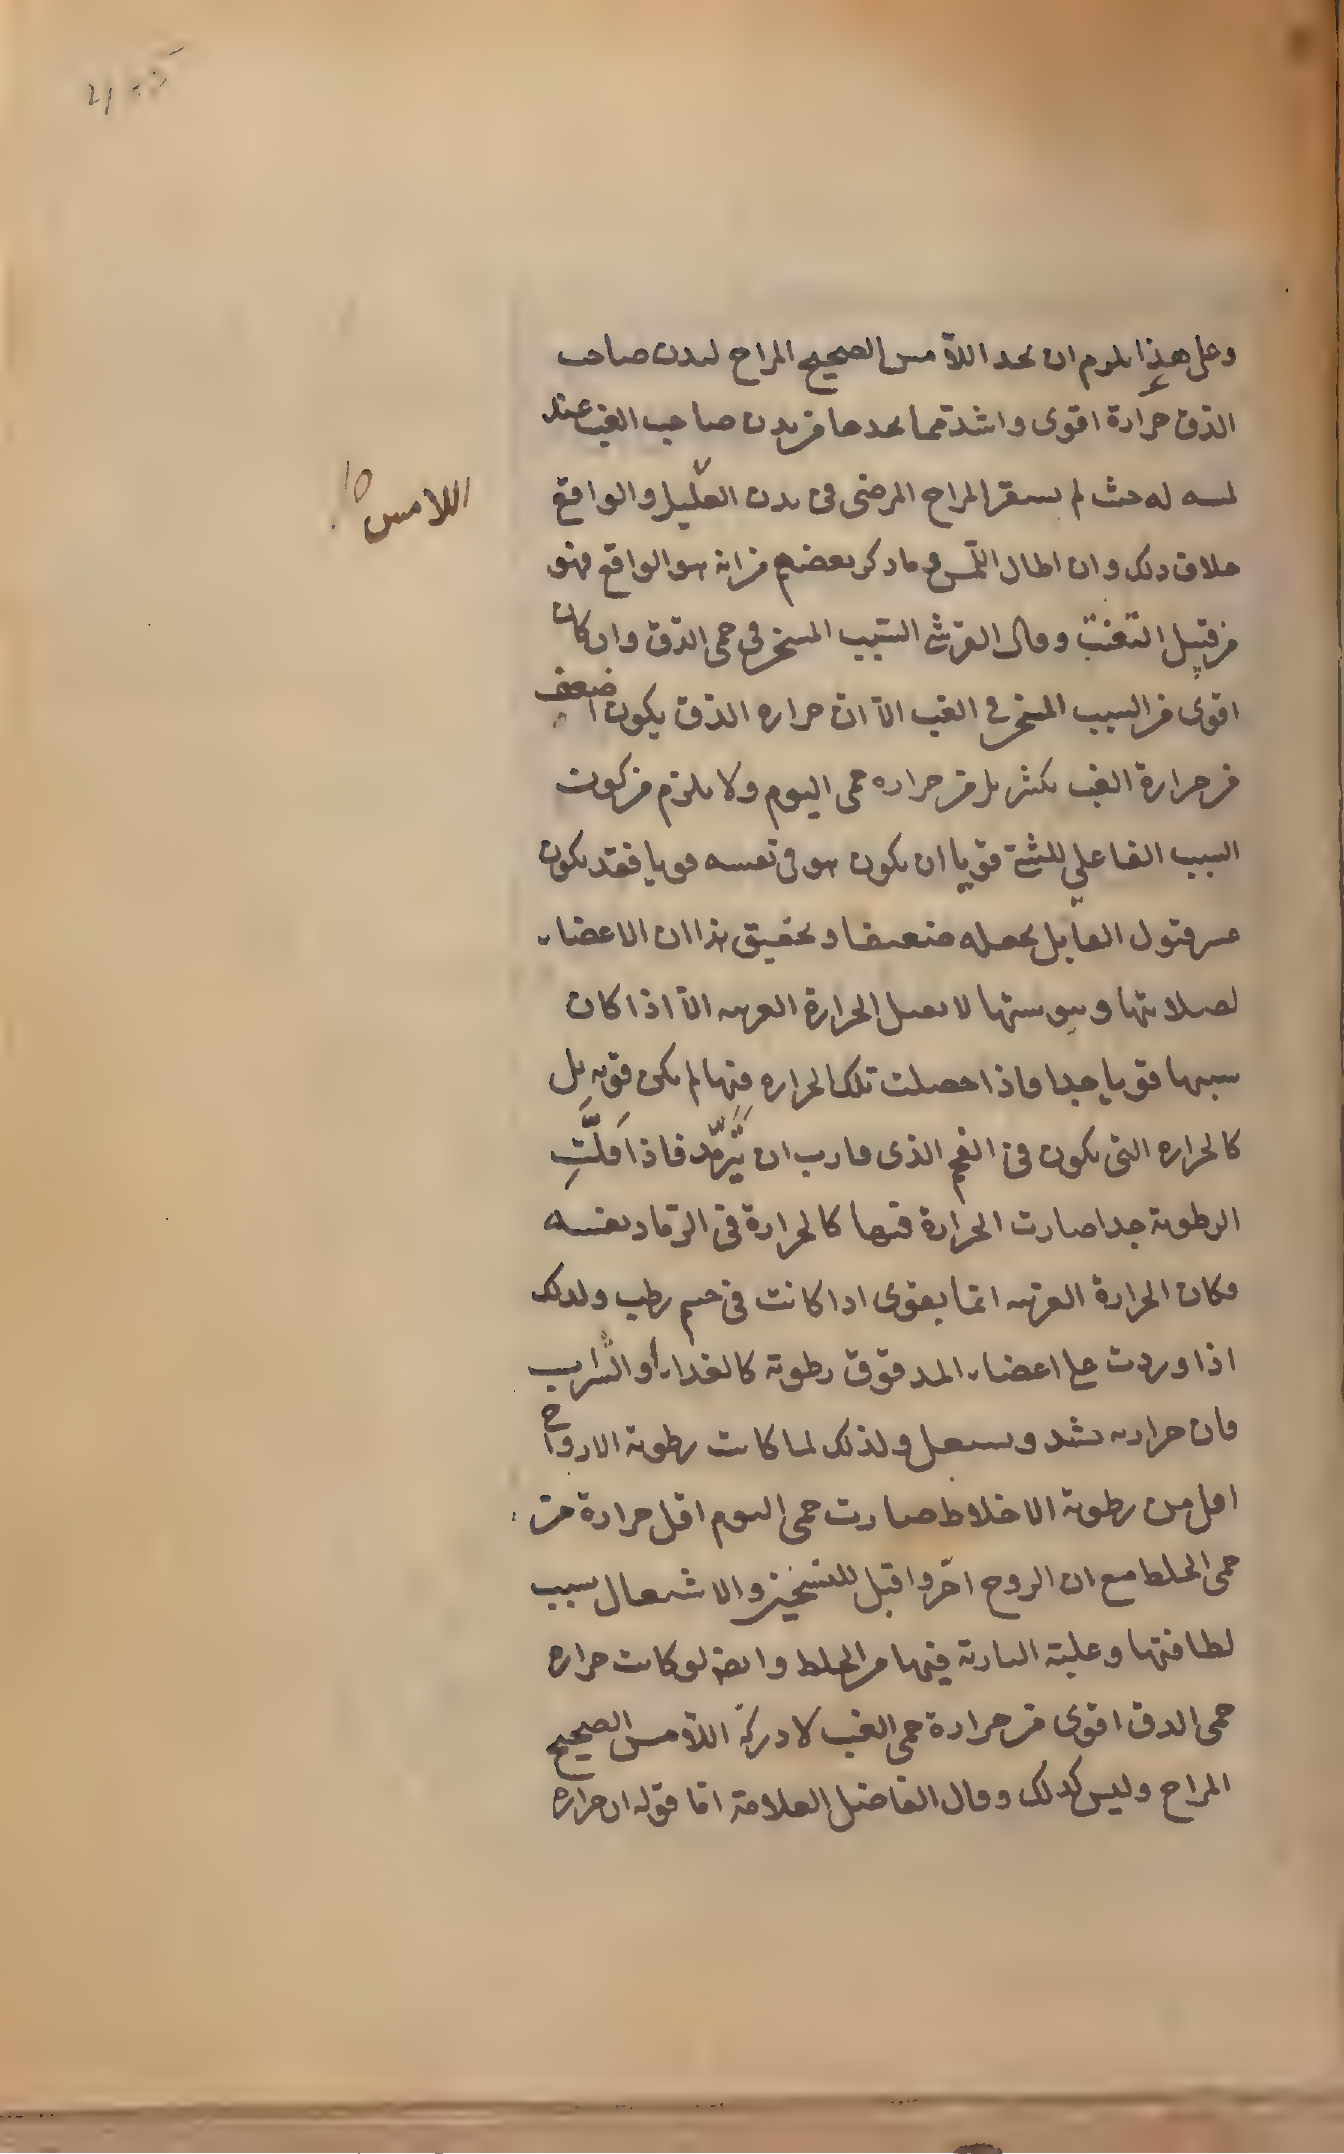 وعلى هذا يلزم ان يجد اللامس الصحيح المزاج لبدن صاحب
الدق حرارة اقوى واشد مما يجدها من بدن صاحب الغب عند
لمسه له حيث لم يستقر المزاج المرضى فى بدن العليل والواقع
اللامس
خلاف ذلك وان اطال اللمس وما ذكر بعضهم من انه هو الواقع فهو
من قبيل التعنت وقال القرشى السبب المسخن فى حمى الدق وان كان
اقوى من السبب المسخن فى الغب الا ان حرارة الدق يكون اضعف
من حرارة الغب بكثير بل من حرارة حمى اليوم ولا يلزم من كون
السبب الفاعلي للشئ قويا ان يكون هو فى نفسه قويا فقد يكون
عسر قبول القابل يجعله ضعيفا وتحقيق هذا ان الاعضاء
لصلابتها ويبوستها لا تقبل الحرارة الغريبه الا اذا كان
سببها قويا جدا فاذا حصلت تلك الحرارة فيها لم يكن قويه بل
كالحرارة التى يكون فى الفحم الذى قارب ان يترمد فاذا قلت
الرطوبة جدا صارت الحرارة فيها كالحرارة فى الرماد نفسه
وكان الحرارة الغريبه انما يقوى اذا كانت فى جسم رطب ولذلك
اذا وردت على اعضاء المدقوق رطوبة كالغداء او الشراب
فان حرارته تشتد وتشتعل ولذلك لما كانت رطوبة الارواح
اقل من رطوبة الاخلاط صارت حمى اليوم اقل حرارة من
حمى الخلط مع ان الروح احر واقبل للتسخين والاشتعال بسبب
لطافتها وغلبة النارية فيها من الخلط وايضا لو كانت حرارة
حمى الدق اقوى من حرارة حمى الغب لادركه اللامس الصحيح
المزاج وليس كذلك وقال الفاضل العلامة اما قوله ان حرارة